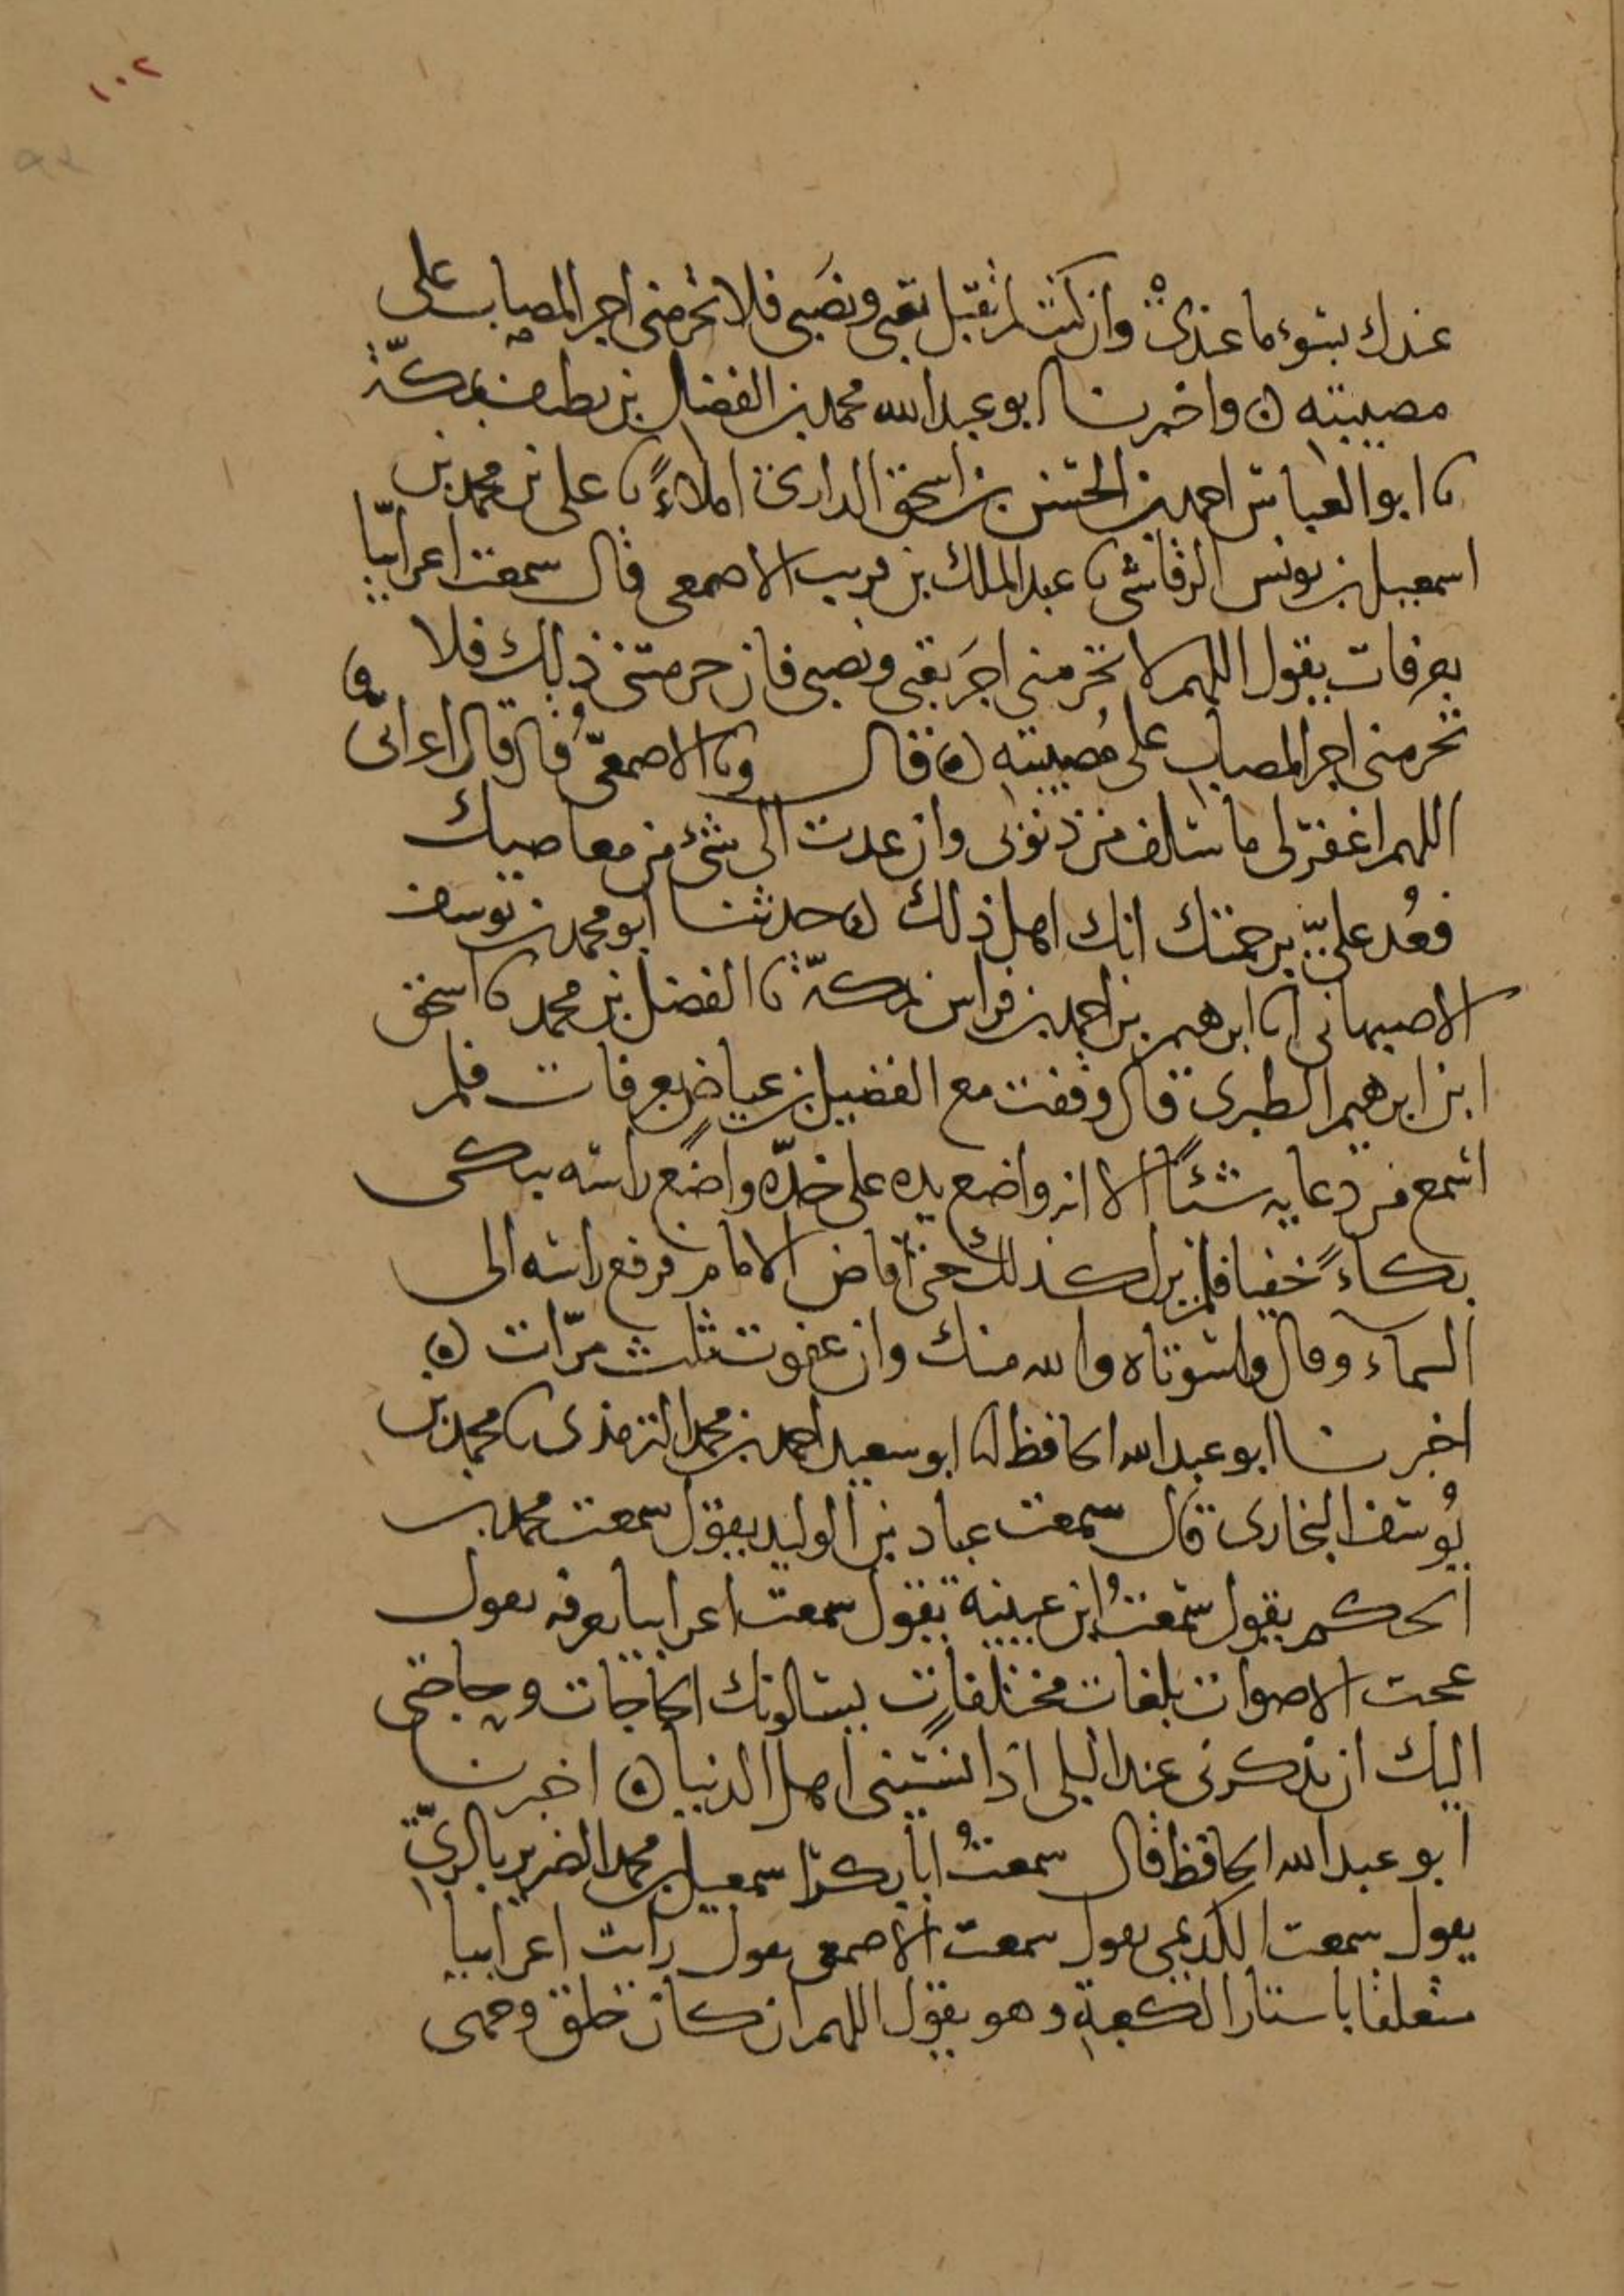 ١٠٢
عندك بسوء ما عندى وان كنت لم تقبل تعبى ونصبى فلا تحرمنى اجر المصاب على
مصيبته ه واخبرنا ابو عبد الله محمد بن الفضل بن نظيف بمكة
نا ابو العباس احمد بن الحسن بن اسحق الرازى املاءً نا على بن محمد بن
اسمعيل بن يونس الرقاشى نا عبد الملك بن قريب الاصمعى قال سمعت اعرابيا
بعرفات يقول اللهم لا تحرمنى اجر تعبى ونصبى فان حرمتنى ذلك فلا
تحرمنى اجر المصاب على مصيبته ه قال ونا الاصمعىّ قال قال اعرابى
اللهم اغفر لى ما سلف من ذنوبى وان عدت الى شئ من معاصيك
فعُد علىّ برحمتك انك اهل ذلك ه حدثنا ابو محمد بن يوسف
الاصبهانى انا ابرهيم بن احمد بن فراس بمكة نا الفضل بن محمد نا اسحق
ابن ابرهيم الطبرى قال وقفت مع الفضيل بن عياض بعرفات فلم
اسمع من دعايه شئًا الا انه واضع يده على خدّه واضع راسه يبكى
بكاءً خفيا فلم يزل كذلك حتى افاض الامام فرفع راسه الى
السماء وقال واسوتاه والله منك وان عفوت ثلث مرّات ه
اخبرنا ابو عبد الله الحافظ انا ابو سعيد احمد بن محمد الترمذى نا محمد بن
يُوسف البخارى قال سمعت عباد بن الوليد يقول سمعت محمد بن
الحكم يقول سمعتُ ابن عيينة يقول سمعت اعرابيا بعرفه يقول
عجت الاصوات بلغات مختلفاتٍ يسالونك الحاجات وحاجتى
اليك ان تذكرنى عند البلى اذا نسينى اهل الدنيا ه اخبرنا
ابو عبد الله الحافظ قال سمعتُ ابا بكر اسمعيل بن محمد الضرير بالرىّ
يقول سمعت الكديمى يقول سمعت الاصمعى يقول رايت اعرابيا
متعلقا باستار الكعبة وهو يقول اللهم ان كان خلق وجهى